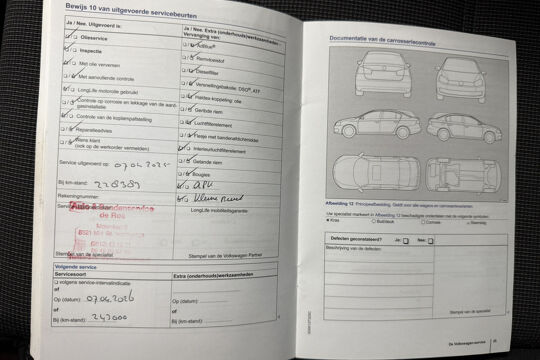 Bewijs 10 van uitgevoerde servicebeurten
Ja / Nee. Uitgevoerd is:
Olieservice
Inspectie
Met olie verversen
Met aanvullende controle
LongLife motorolie gebruikt
Controle op corrosie en lekkage van de aardgasinstallatie
Controle van de koplampafstelling
Reparatieadvies
Wens klant
(ook op de werkorder vermelden)
Service uitgevoerd op: 07.04.2025
Bij km-stand:
Rekeningnummer:
Auto & Bandenservice
de Ros
Stempel van de specialist
Ja / Nee. Extra (onderhouds)werkzaamheden
Vervanging van:
AdBlue®
Remvloeistof
Dieselfilter
Versnellingsbakolie: DSG®, ATF
Haldex-koppeling: olie
Getribde riem
Luchtfilterelement
Flesje met bandenafdichtmiddel
Interieurluchtfilterelement
Getande riem
Bougies
APK
Kleine
LongLife mobiliteitsgarantie:
Stempel van de Volkswagen Partner
Volgende service
Servicesoort
volgens service-intervalindicatie
of
Op (datum): 07.04.2026
of
Bij (km-stand): 243000
Extra (onderhouds)werkzaamheden
Op (datum):
of
Bij (km-stand):
Documentatie van de carrosseriecontrole
Afbeelding 12 Principeafbeelding. Geldt voor alle wagens en carrosserievormen.
Uw specialist markeert in Afbeelding 12 beschadigde onderdelen met de volgende symbolen:
Kras
Buil/deuk
Corrosie
Steenslag
Defecten geconstateerd?
Ja:
Nee:
Beschrijving van de defecten:
Stempel van de specialist
De Volkswagen-service